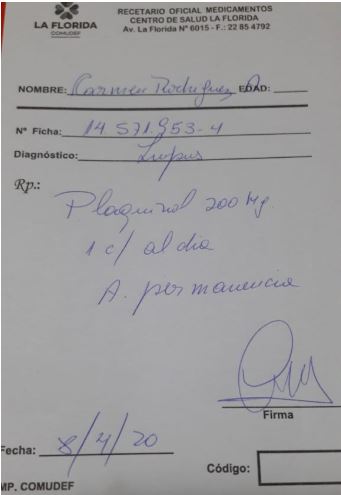 LA FLORIDA
COMUDEF
RECETARIO OFICIAL MEDICAMENTOS
CENTRO DE SALUD LA FLORIDA
Av. La Florida N° 6015 - F.: 22 85 4792
NOMBRE: Carmen Rodriguez EDAD:
N° Ficha: 14.571.953-4
Diagnóstico: Lupus
Rp.:
Plaquinol 200 Mg.
1 c/ al dia
A. permanencia
Firma
Fecha: 8/4/20
Código:
MP. COMUDEF